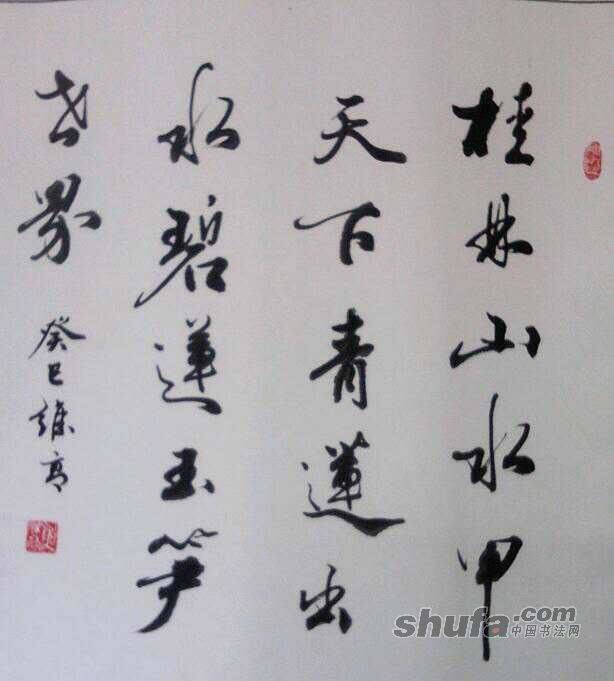 桂林山水甲
天下青莲出
水碧莲玉笋
世界
癸巳
shufa.com
中国书法网